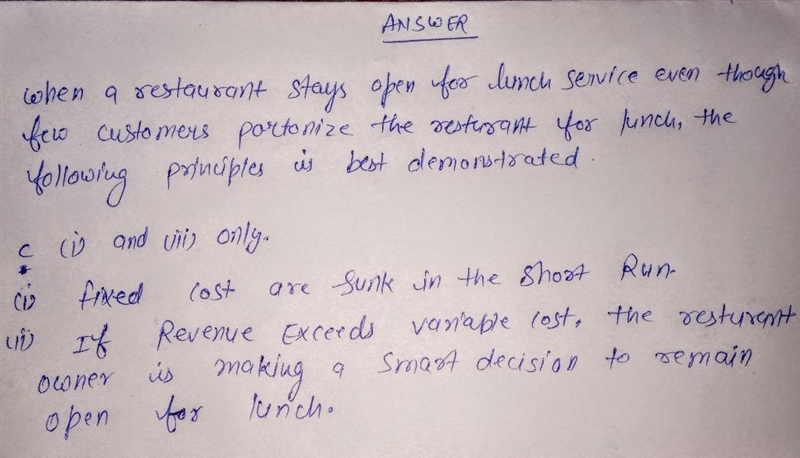 ANSWER
when a restaurant stays open for lunch service even though
few customers portonize the resturant for lunch, the
following principles is best demonstrated.
c (i) and (iii) only.
(i) fixed cost are sunk in the short Run.
(ii) If Revenue Exceeds variable cost, the resturant
owner is making a smart decision to remain
open for lunch.